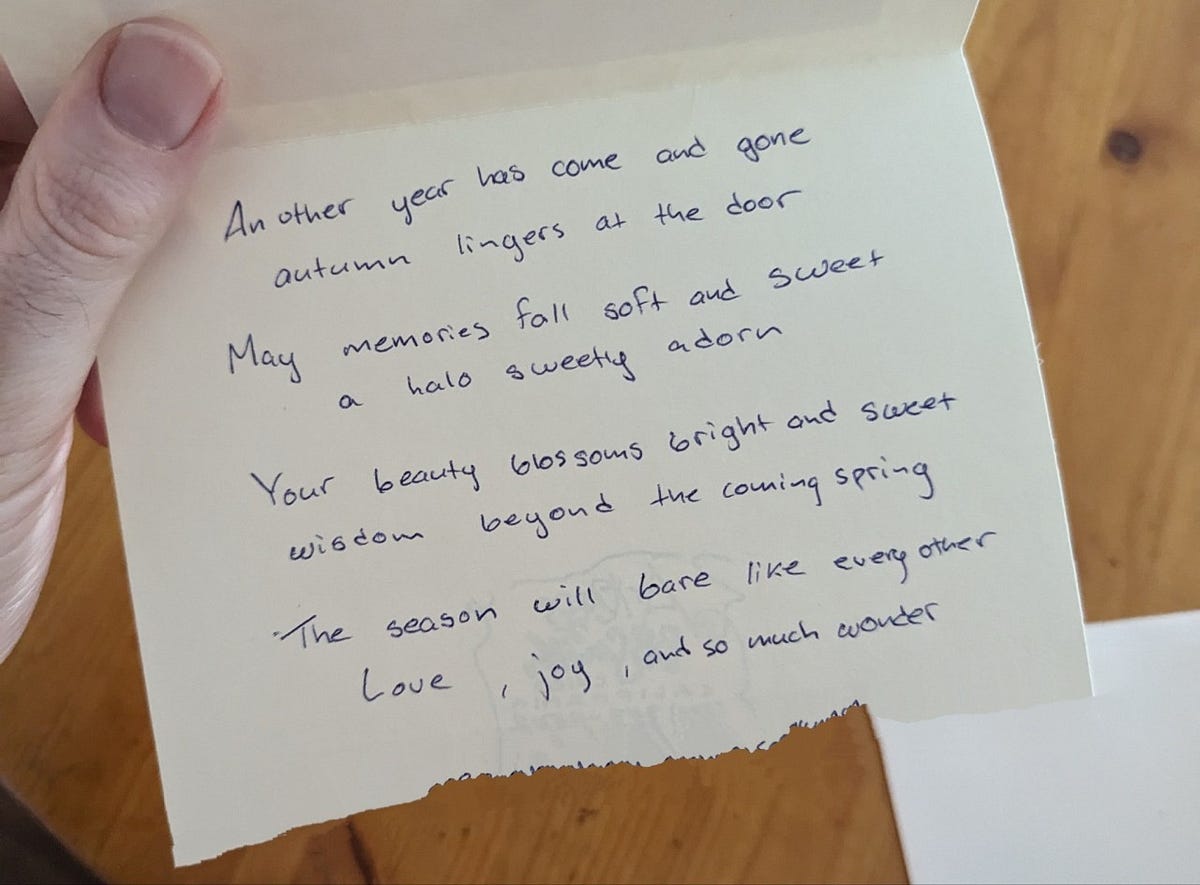 Another year has come and gone
autumn lingers at the door
May memories fall soft and sweet
a halo sweetly adorn
Your beauty blossoms bright and sweet
wisdom beyond the coming spring
The season will bare like every other
Love, joy, and so much wonder